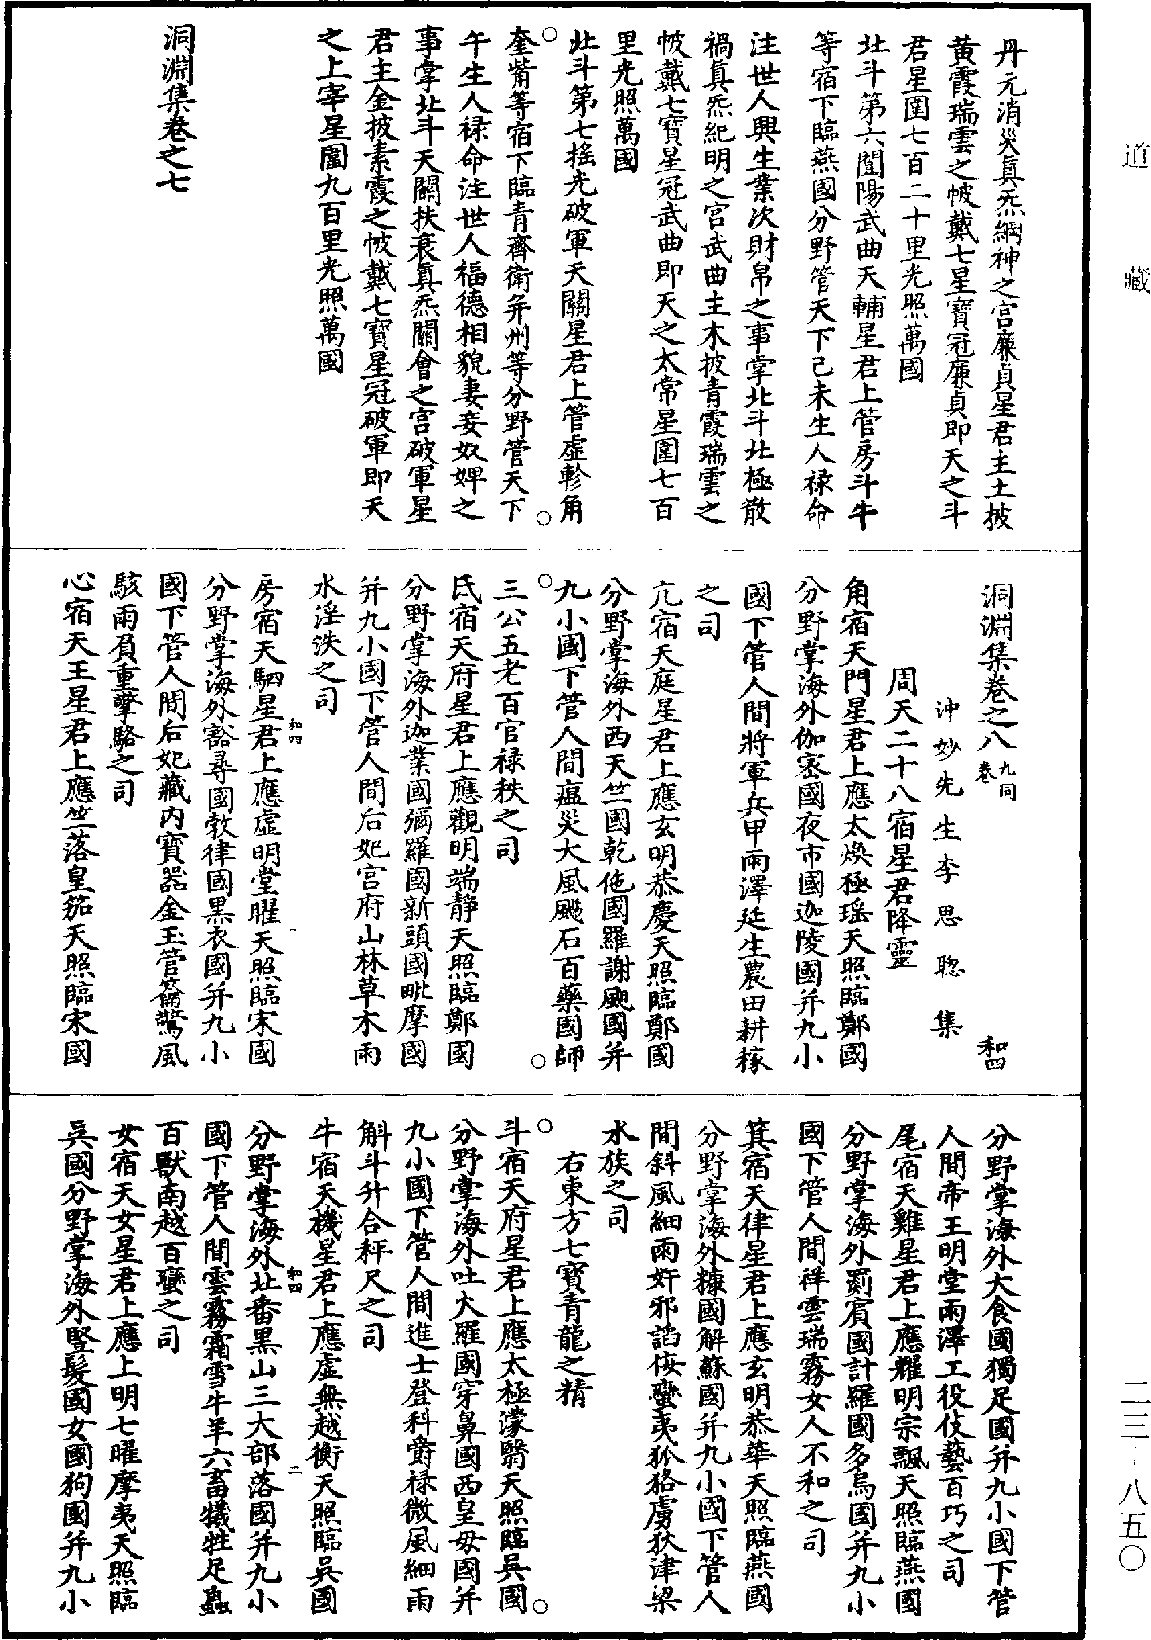 道藏
二三·八五〇
丹元消災真炁綱神之宮廉貞星君主土披
黃霞瑞雲之帔戴七星寶冠廉貞即天之斗
君星圍七百二十里光照萬國
北斗第六闓陽武曲天輔星君上管房斗牛
等宿下臨燕國分野管天下己未生人祿命
注世人興生業次財帛之事掌北斗北極散
禍真炁紀明之宮武曲主木披青霞瑞雲之
帔戴七寶星冠武曲即天之太常星圍七百
里光照萬國
北斗第七搖光破軍天關星君上管虛軫角
奎觜等宿下臨青齊衛并州等分野管天下
午生人祿命注世人福德相貌妻妾奴婢之
事掌北斗天關扶衰真炁關會之宮破軍星
君主金披素霞之帔戴七寶星冠破軍即天
之上宰星圍九百里光照萬國
洞淵集卷之七
洞淵集卷之八 九同卷 和四
沖妙先生李思聰集
周天二十八宿星君降靈
角宿天門星君上應太煥極瑤天照臨鄭國
分野掌海外伽宻國夜市國迦陵國并九小
國下管人間將軍兵甲雨澤廷生農田耕稼
之司
亢宿天庭星君上應玄明恭慶天照臨鄭國
分野掌海外西天竺國乾佗國羅謝颰國并
九小國下管人間瘟災大風颺石百藥國師
三公五老百官祿秩之司
氐宿天府星君上應觀明端靜天照臨鄭國
分野掌海外迦葉國彌羅國新頭國毗摩國
并九小國下管人間后妃宮府山林草木雨
水淫泆之司
房宿天駟星君上應虛明堂曜天照臨宋國
和四
分野掌海外豁尋國敎律國黑衣國并九小
國下管人間后妃藏內寶器金玉管籥驚風
駭雨負重擊駱之司
心宿天王星君上應竺落皇笳天照臨宋國
分野掌海外大食國獨足國并九小國下管
人間帝王明堂雨澤工役伎藝百巧之司
尾宿天雞星君上應耀明宗飄天照臨燕國
分野掌海外罽賓國計羅國多烏國并九小
國下管人間祥雲瑞霧女人不和之司
箕宿天律星君上應玄明恭華天照臨燕國
分野掌海外糠國解蘇國并九小國下管人
間斜風細雨奸邪謟佞蠻夷狐貉虜狄津梁
水族之司
右東方七寶青龍之精
斗宿天府星君上應太極濛翳天照臨吳國
分野掌海外吐大羅國穿鼻國西皇母國并
九小國下管人間進士登科爵祿微風細雨
斛斗升合秤尺之司
牛宿天機星君上應虛無越衡天照臨吳國
和四 二
分野掌海外北番黑山三大部落國并九小
國下管人間雲霧霜雪牛羊六畜犧牲足蟲
百獸南越百蠻之司
女宿天女星君上應上明七曜摩夷天照臨
吳國分野掌海外豎髮國女國狗國并九小